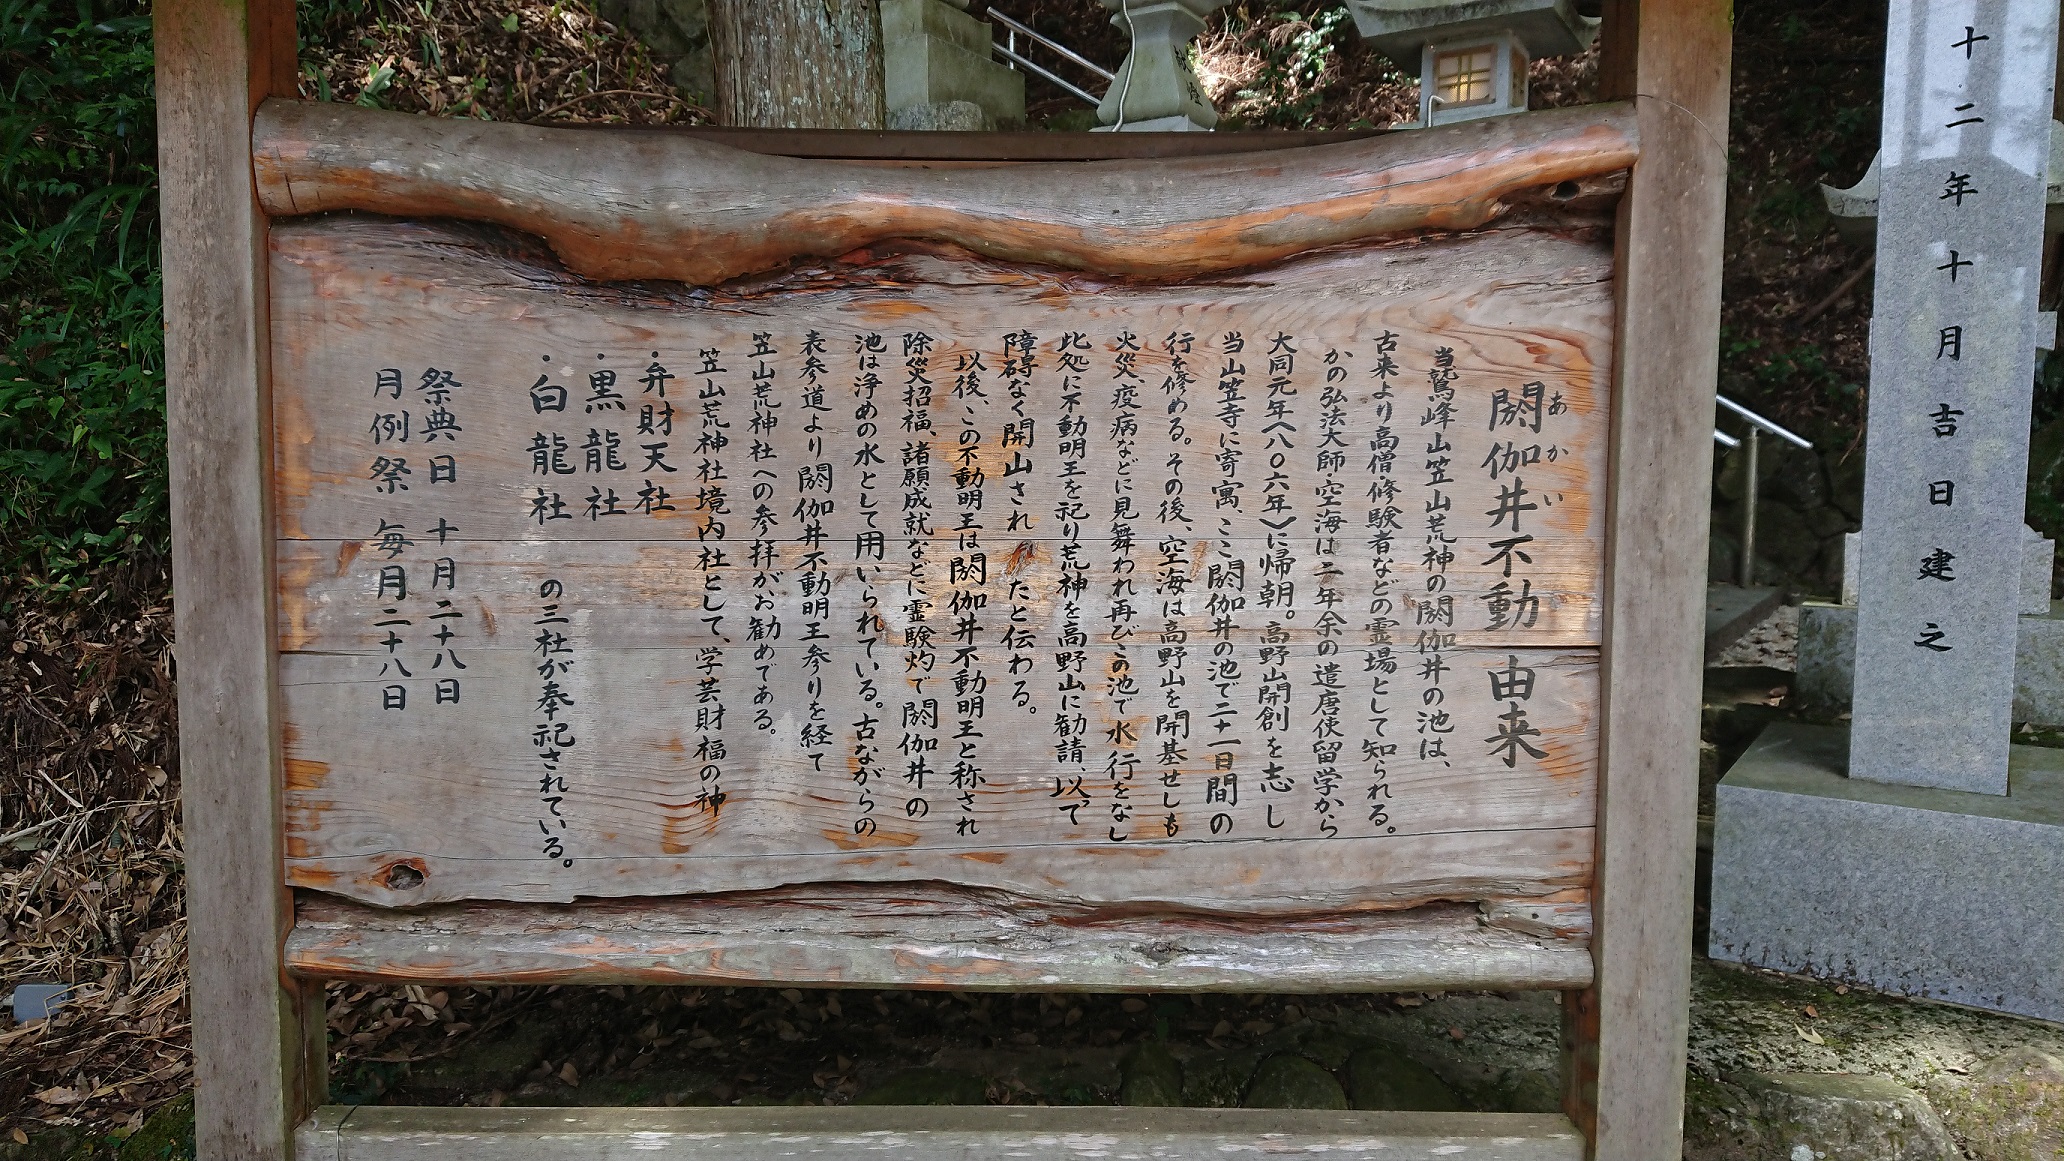 十二年十月吉日建之
閼伽井不動 由来
あかい
当鷲峰山笠山荒神の閼伽井の池は、
古来より高僧・修験者などの霊場として知られる。
かの弘法大師・空海は二年余の遣唐使留学から
大同元年(八〇六年)に帰朝。高野山開創を志し
当山笠寺に寄寓、ここ閼伽井の池で二十一日間の
行を修める。その後、空海は高野山を開基せしも
火災、疫病などに見舞われ再びこの池で水行をなし
此処に不動明王を祀り荒神を高野山に勧請、以って
障碍なく開山されたと伝わる。
以後、この不動明王は閼伽井不動明王と称され
除災招福、諸願成就などに霊験灼で閼伽井の
池は浄めの水として用いられている。古ながらの
表参道より閼伽井不動明王参りを経て
笠山荒神社への参拝がお勧めである。
笠山荒神社境内社として、学芸財福の神
・弁財天社
・黒龍社
・白龍社 の三社が奉祀されている。
祭典日 十月二十八日
月例祭 毎月二十八日